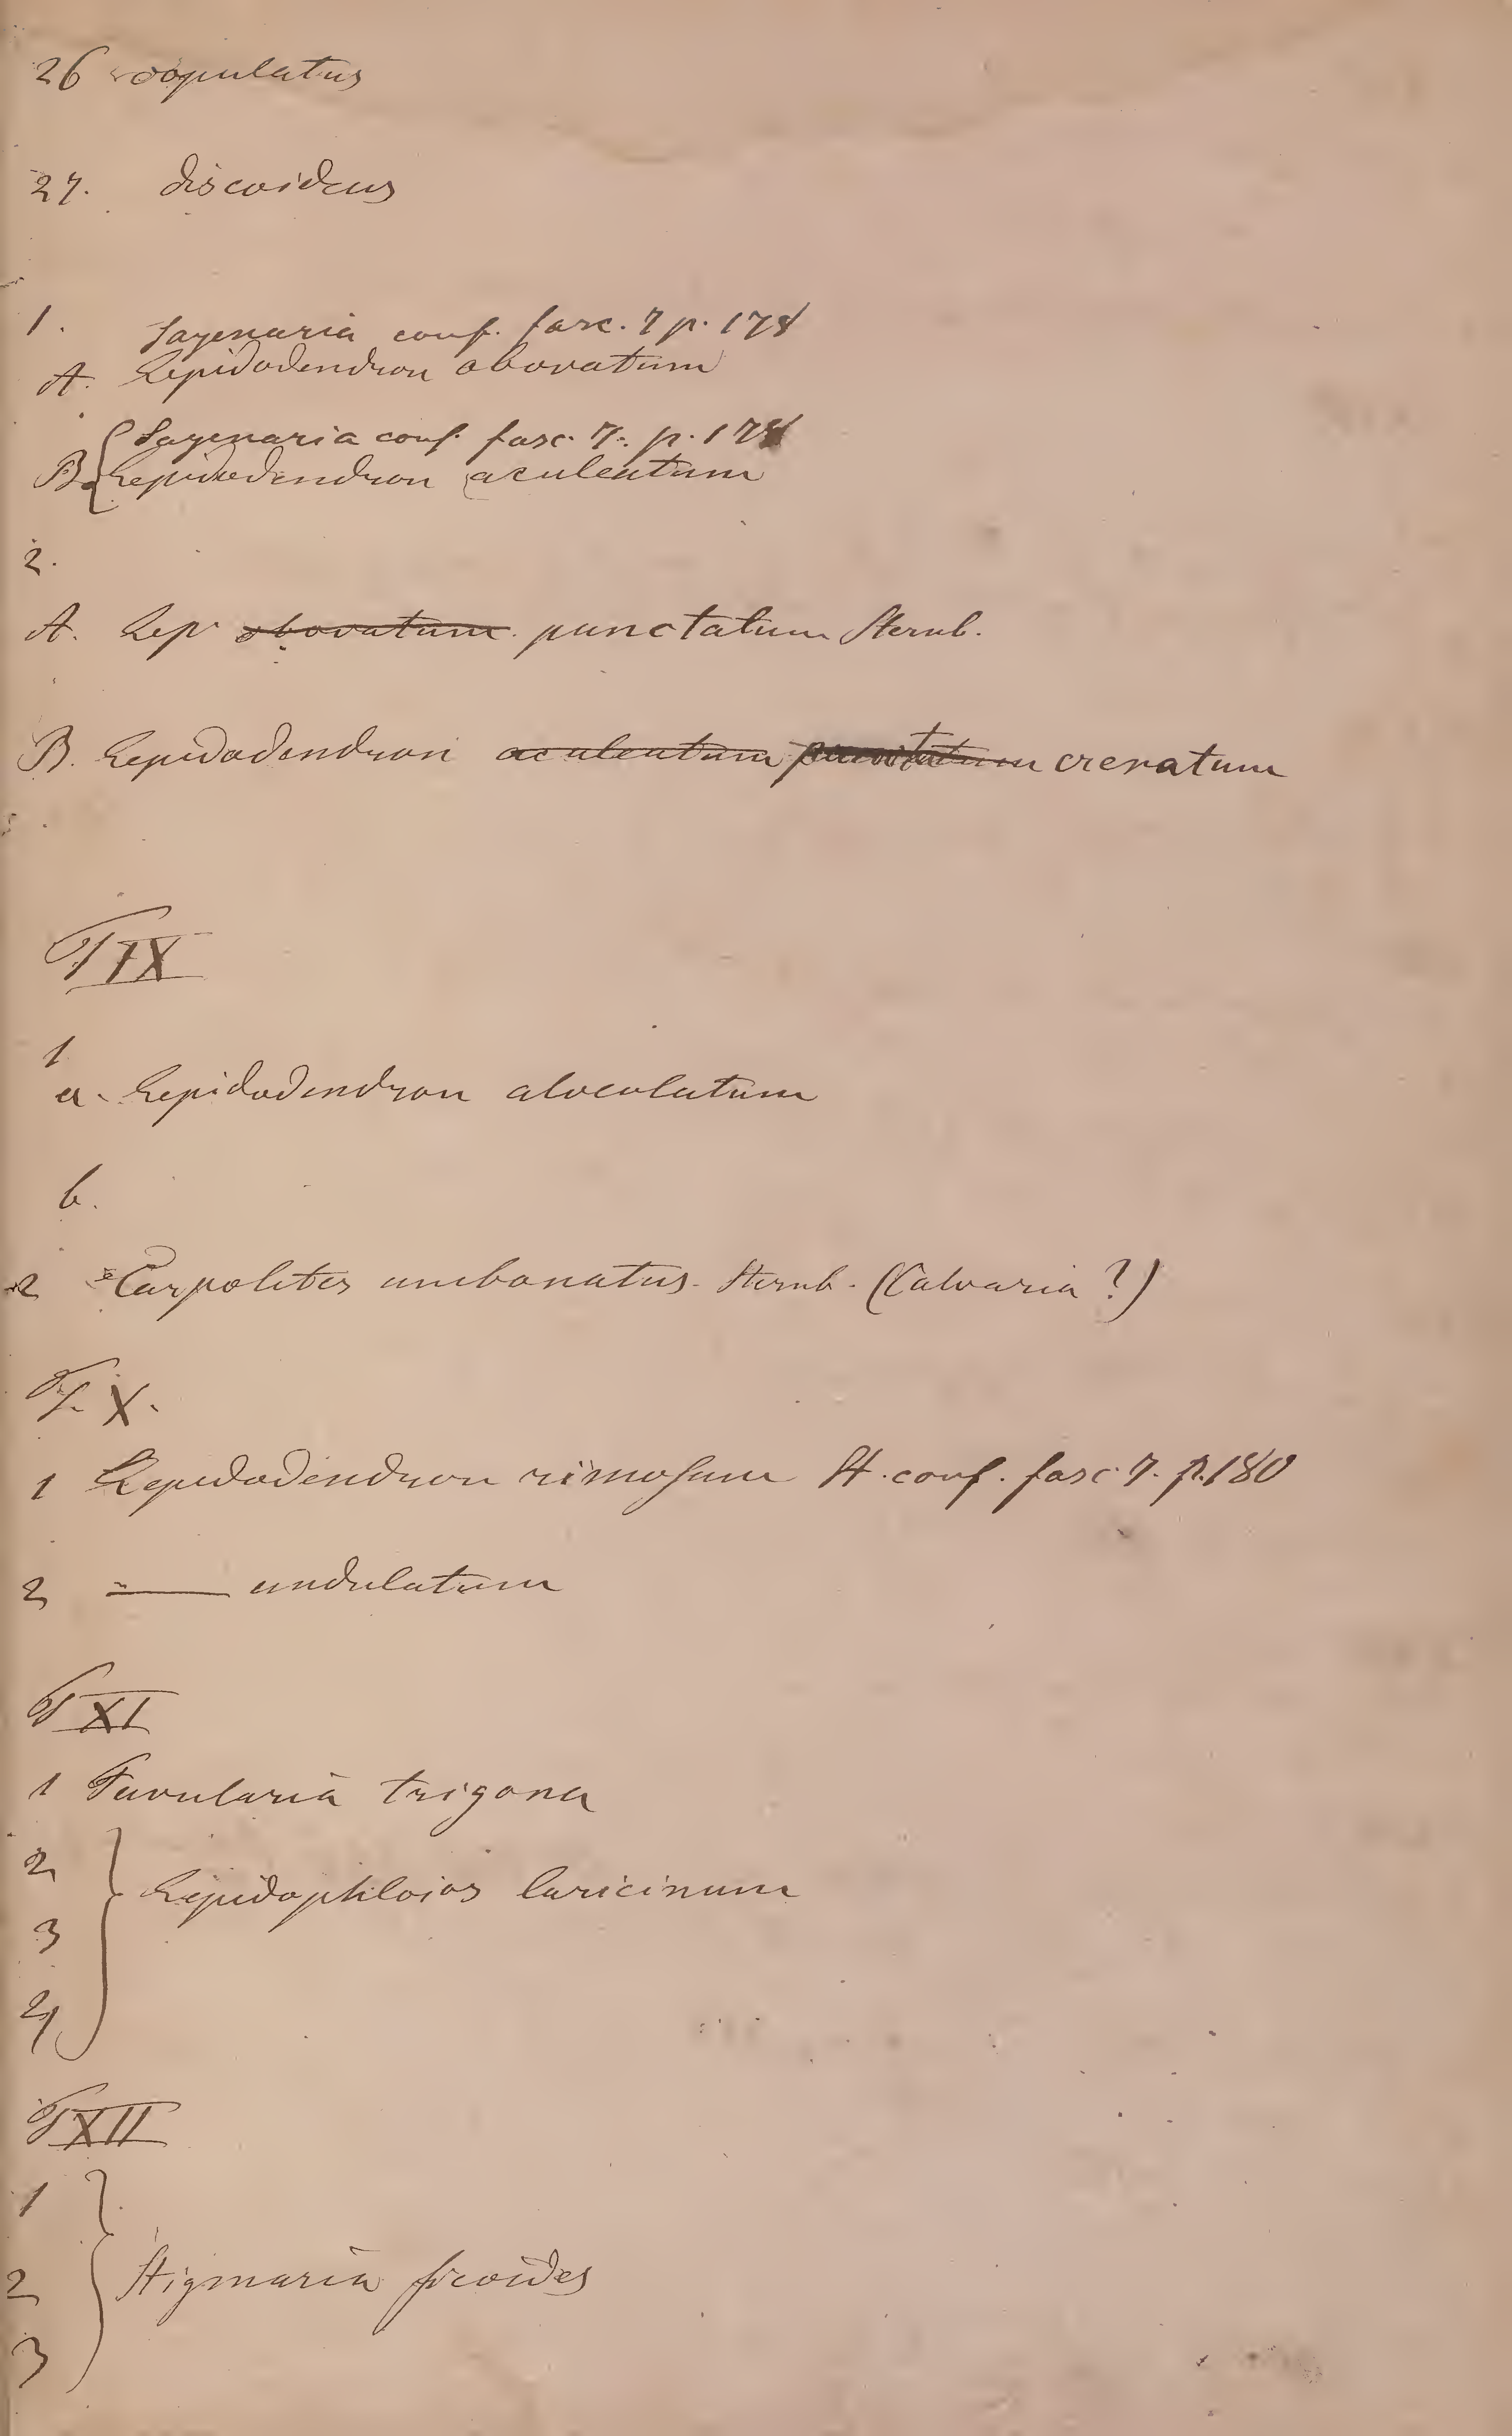 26 copulatus
27. discoideus
1. Sagenaria conf. fasc. 7 p. 178
A. Lepidodendron obovatum
Sagenaria conf. fasc. 7. p. 178
B. Lepidodendron aculeatum
2.
A. Lep obovatum punctatum Sternb.
B. Lepidodendron aculeatum punctatum crenatum
T IX
1
a. Lepidodendron alveolatum
b.
2 Carpolites umbonatus. Sternb. (Calvaria?)
T. X.
1 Lepidodendron rimosum St. conf. fasc. 7. p. 180
2 — undulatum
T XI
1 Favularia trigona
2
Lepidophloios laricinum
3
4
T XII
1
2 Stigmaria ficoides
3